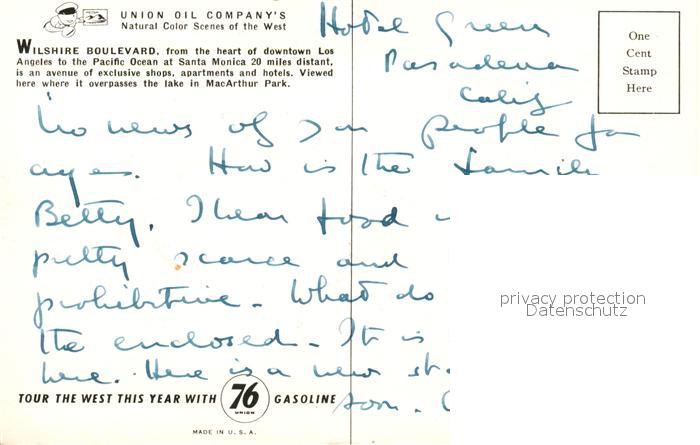 UNION OIL COMPANY'S
Natural Color Scenes of the West
WILSHIRE BOULEVARD, from the heart of downtown Los
Angeles to the Pacific Ocean at Santa Monica 20 miles distant,
is an avenue of exclusive shops, apartments and hotels. Viewed
here where it overpasses the lake in MacArthur Park.
Hotel Green
Pasadena
Calif
One
Cent
Stamp
Here
No news of you people for
ages. How is the famil
Betty, I hear food
pretty scarce and
prohibitive - What do
the enclosed - It is
here. Here is a new st
soon.
privacy protection
Datenschutz
TOUR THE WEST THIS YEAR WITH 76 UNION GASOLINE
MADE IN U.S.A.